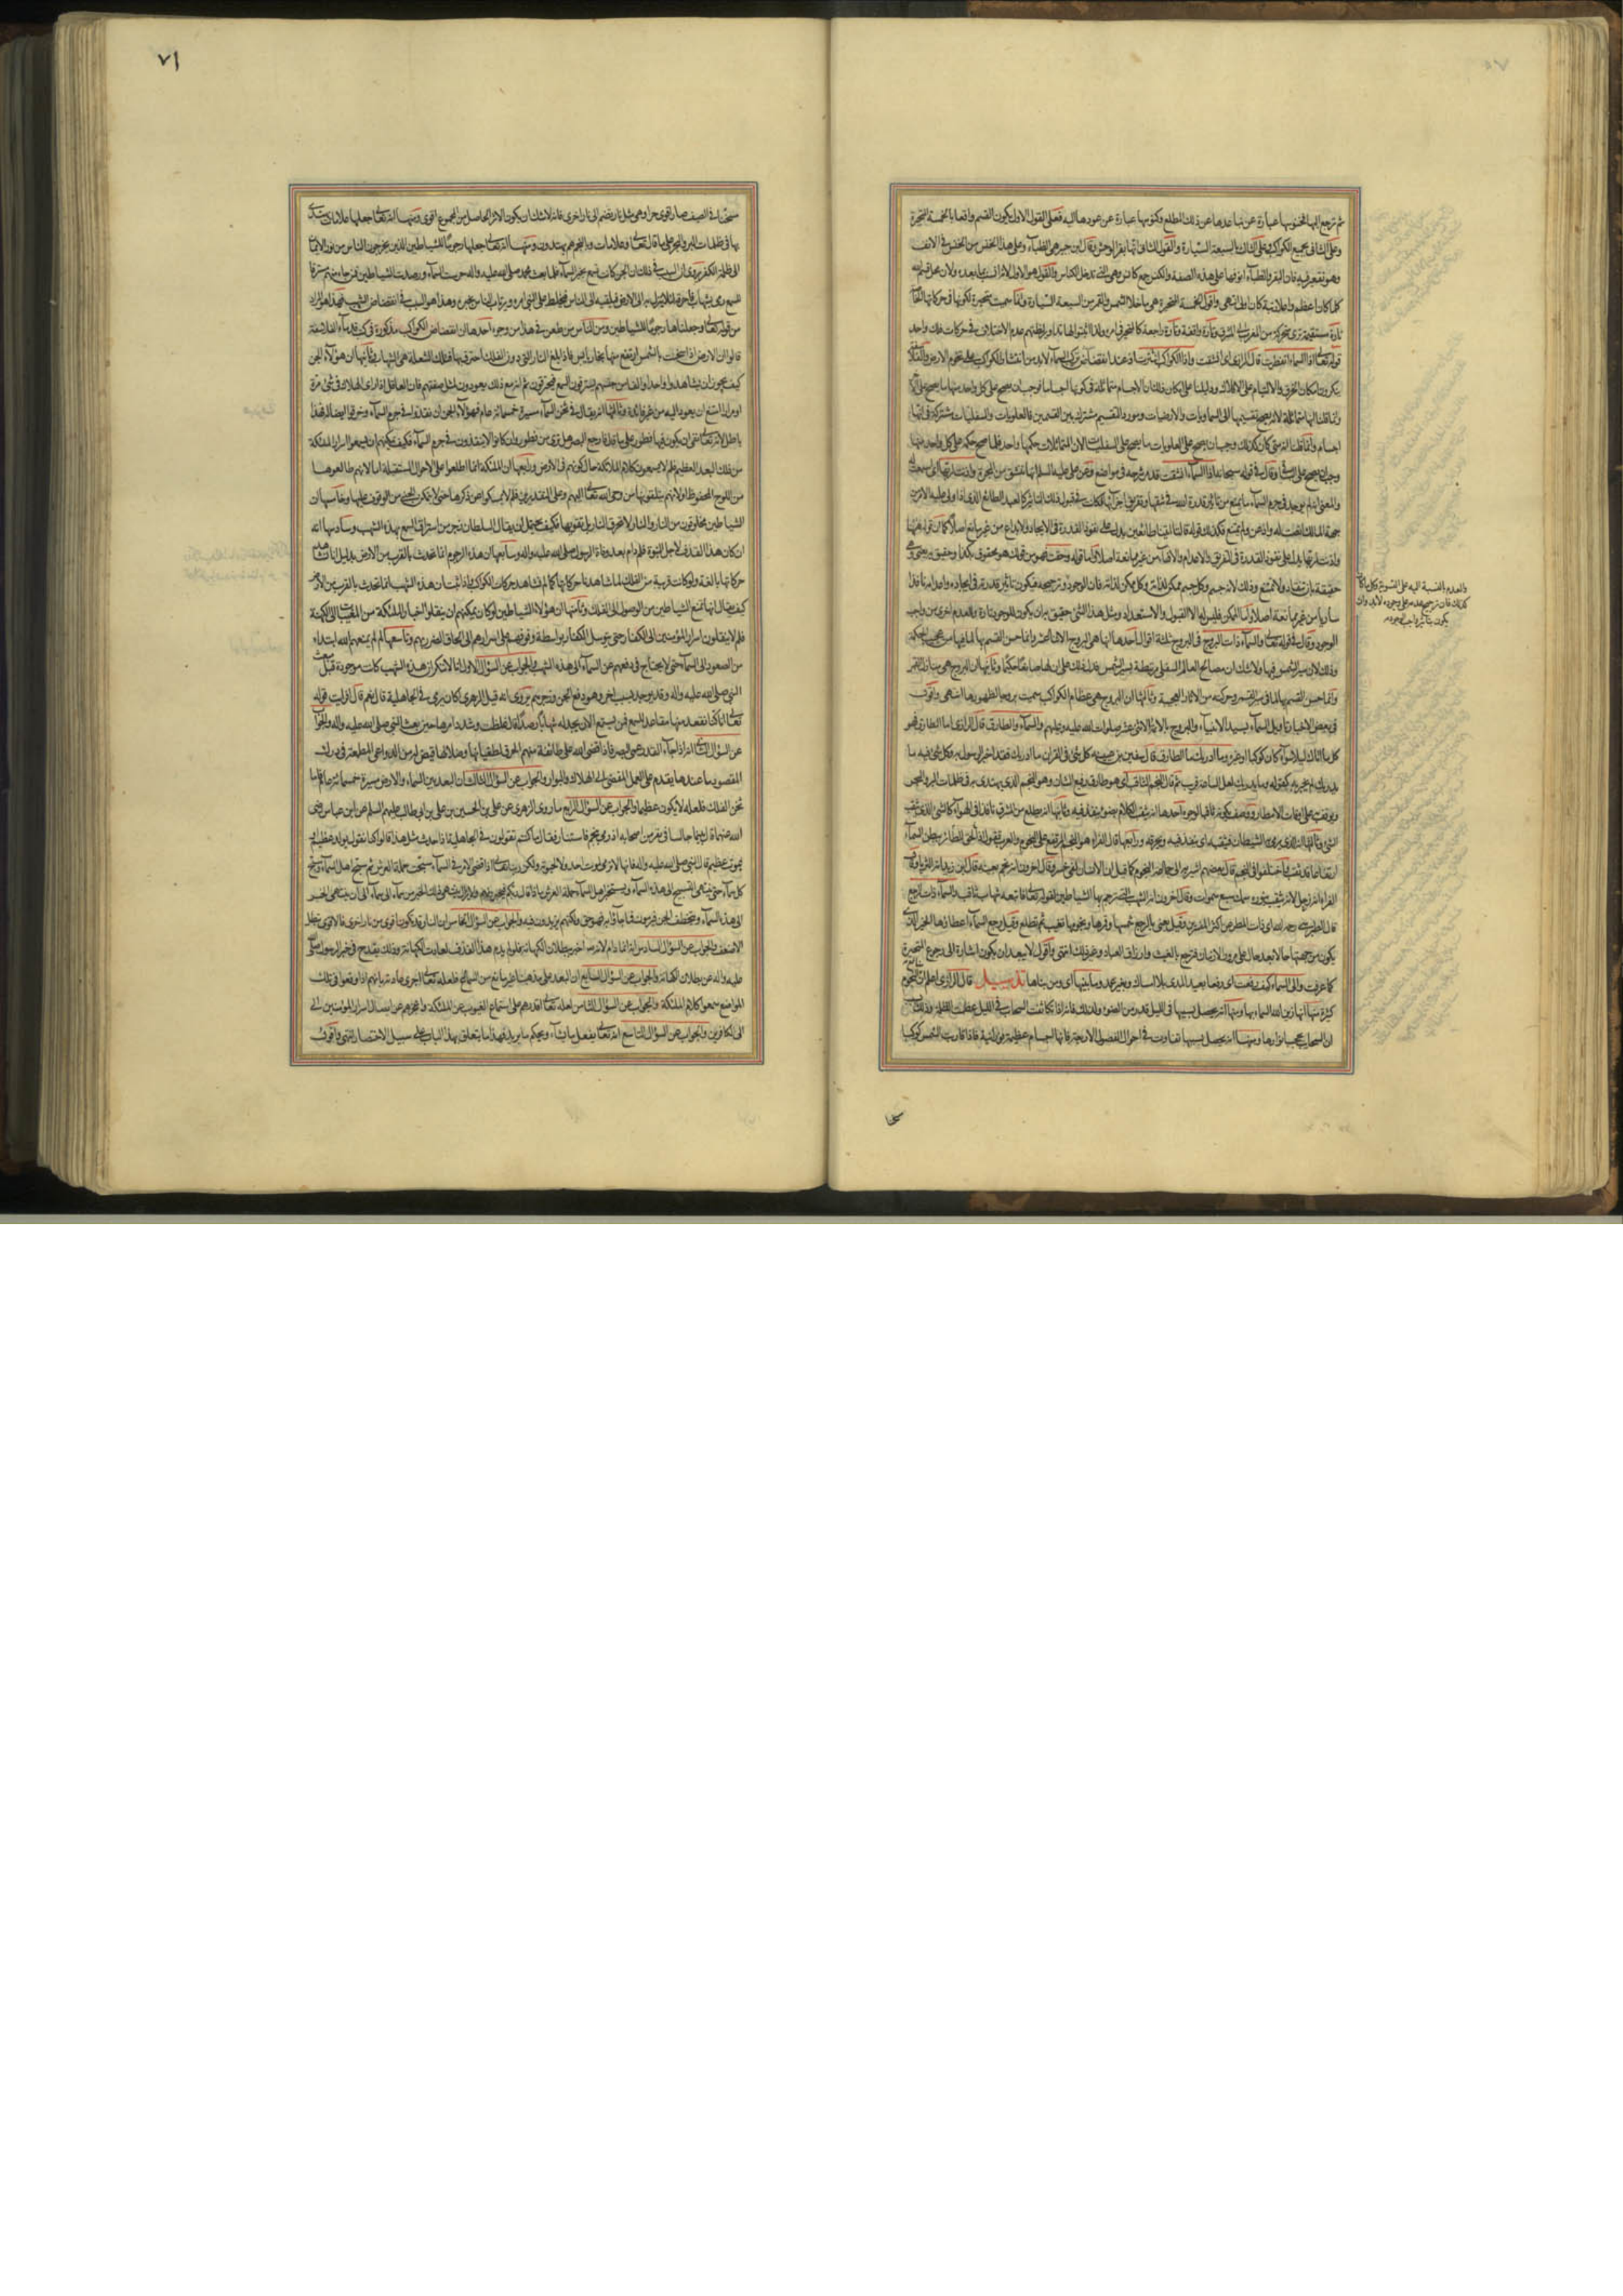 ثم ترجع اليها الخنوسها عبارة عن تباعدها عن ذلك المطلع وكنوسها عبارة عن عودها اليه فعلى القول الاول يكون القسم واقعا بالخمسة المتحيرة
وعلى الثانى بجميع الكواكب وعلى الثالث بالسبعة السيارة والقول الثانى انها بقر الوحش وقال ابن جبير هى الظباء وعلى هذا الخنس من الخنس فى الانف
وهو تقعير فيه فان البقر والظباء انوفها على هذه الصفة والكنس جمع كانس وهى التى تدخل الكناس والقول هو الاول
كلما كان اعظم واعلا رتبة كان اولى انتهى واقول الخمسة المتحيرة هى ما خلا الشمس والقمر من السبعة السيارة وانما سميت متحيرة لكونها فى حركاتها الخاصة
تارة مستقيمة ترى متحركة من المغرب الى المشرق وتارة واقفة وتارة راجعة كالمتحير فى امره
قوله تعالى اذا السماء انفطرت قال الرازى اى انشقت واذا الكواكب انتثرت
ينكرون امكان الخرق والالتيام على الافلاك ودليلنا على امكان ذلك ان الاجسام متماثلة فى كونها اجساما فوجب ان يصح على كل واحد منها ما يصح على الآخر
وانما قلنا انها متماثلة لانه يصح تقسيمها الى السماويات والارضيات ومورد التقسيم مشترك بين القسمين فالعلويات والسفليات مشتركة فى انها
اجسام وانما قلنا انه متى كان كذلك وجب ان يصح على العلويات ما يصح على السفليات لان المتماثلات حكمها واحد فلما صح حكم على كل واحد منها
وجب ان يصح على الباقى وقال فى قوله سبحانه اذا السماء انشقت قد مر شرحه فى مواضع وعن على عليه السلام انها تنشق من المجرة واذنت لربها اى استمعت له
والمعنى انه لم يوجد فى جرم السماء ما يمنع من تأثير قدرة الله فى شقها وتفريق اجزائها فكانت فى قبول ذلك التأثير كالعبد الطائع الذى اذا ورد عليه الامر من
جهة المالك انصت له واذعن ولم يمتنع فكذلك قوله قالتا اتينا طائعين يدل على نفوذ القدرة فى الايجاد والابداع من غير ممانع اصلا كما ان قوله هيهنا
واذنت لربها يدل على نفوذ القدرة فى التفريق والاعدام والافناء من غير ممانعة اصلا واما قوله وحقت فهو من قولك هو محقوق بكذا وحقيق به يعنى وهى
حقيقة بان تنقاد ولا تمتنع وذلك لانه جسم وكل جسم ممكن لذاته وكل ممكن لذاته فان الوجود
والعدم بالنسبة اليه على السوية وكل ما كان
كذلك فان ترجيح عدمه على وجوده لابد وان
يكون بتأثير واجب الوجود
ساريا من غير ممانعة اصلا واما الممكن فليس له الا القبول والاستعداد ومثل هذا الشىء حقيق بان يكون للوجود تارة وللعدم اخرى من واجب
الوجود وقال فى قوله تعالى والسماء ذات البروج فى البروج ثلثة اقوال احدها انها هى البروج الاثنا عشر وانما حسن القسم بها لما فيها من عجيب الحكمة
وذلك لان سير الشمس فيها ولا شك ان مصالح العالم السفلى مرتبطة بسير الشمس فدل ذلك على ان لها صانعا حكيما وثانيها ان البروج هى منازل القمر
وانما حسن القسم بها لما فى سير القمر وحركته من الاثار العجيبة وثالثها ان البروج هى عظام الكواكب سميت بروجا لظهورها انتهى واقول
فى بعض الاخبار تأويل السماء بسيد الانبياء والبروج بالائمة الاثنى عشر صلوات الله عليه وعليهم والسماء والطارق قال الرازى اما الطارق فهو
كل ما اتاك ليلا سواء كان كوكبا او غيره وما ادريك ما الطارق قال سفين بن عيينه كل شئ فى القران ما ادريك فقد اخبر الرسول به وكل شئ فيه ما
يدريك لم يخبر به كقوله وما يدريك لعل الساعة قريب ثم قال النجم الثاقب اى هو طارق رفيع الشان وهو النجم الذى يهتدى به فى ظلمات البر والبحر
ويوقف به على اوقات الامطار ووصف بكونه ثاقبا لوجوه احدها انه يثقب الظلام بضوئه ينفذ فيه وثانيها انه يطلع من المشرق نافذا فى الهواء كالشئ الذى يثقب
الشئ وثالثها انه الذى يرمى به الشيطان فيثقبه اى ينفذ فيه ويحرقه ورابعها قال الفراء هو النجم المرتفع على النجوم والعرب تقول للطائر اذا لحق ببطن السماء
ارتفاعا قد ثقب
قال الطبرسى رحمه الله اى ذات المطر عن اكثر المفسرين وقيل يعنى بالرجع شمسها وقمرها ونجومها تغيب ثم تطلع وقيل رجع السماء اعطاؤها الخير الذى
يكون من جهتها حالا بعد حال على مرور الازمان فترجع بالغيث وارزاق العباد وغير ذلك انتهى واقول لا يبعد ان يكون اشارة الى رجوع المتحيرة
كما عرفت والى السماء كيف رفعت اى رفعا بعيد المدى بلا امساك وبغير عمد وما بنيها اى ومن بناها تذييل قال الرازى اعلم ان منافع النجوم
كثيرة منها انها زين الله السماء بها ومنها انه يحصل بسببها فى الليل قدر من الضوء ولذلك فانه اذا تكاثفت السحاب فى الليل عظمت الظلمة وذلك بسبب
ان السحاب يحجب انوارها ومنها انه يحصل بسببها تفاوت فى احوال الفصول الاربعة فانها اجسام عظيمة نورانية فاذا قارنت الشمس كوكبا
سخنا
٧١
سخنا فى الصيف صار اقوى حرا وهى مثل نار تضم الى نار اخرى فانه لا شك ان يكون الاثر الحاصل من المجموع اقوى ومنها انه تعالى جعلها علامات يهتدى
بها فى ظلمات البر والبحر على ما قال تعالى وعلامات وبالنجم هم يهتدون ومنها انه تعالى جعلها رجوما للشياطين الذين يخرجون الناس من نور الايمان
الى ظلمة الكفر يروى ان السبب فى ذلك ان الجن كانت تسمع بخبر السماء فلما بعث محمد صلى الله عليه واله حرست السماء ورصدت الشياطين فمن جاء منهم مسترقا
للسمع رمى بشهاب فاحرقه لئلا ينزل به الى الارض فيلقيه الى الناس فيخلط على النبى امره ويرتاب الناس بخبره وهذا هو السبب فى انقضاض الشهب فهذا هو المراد
من قوله تعالى وجعلناها رجوما للشياطين ومن الناس من طعن فى هذا من وجوه احدها ان انقضاض الكواكب مذكورة فى كتب قدماء الفلاسفة
قالوا ان الارض اذا سخنت بالشمس ارتفع منها بخار يابس فاذا بلغ النار التى دون الفلك احترق بها فتلك الشعلة هى الشهاب وثانيها ان هؤلاء الجن
كيف يجوز ان يشاهدوا واحدا والفا من جنسهم يسترقون السمع فيحترقون ثم انهم مع ذلك يعودون لمثل صنيعهم فان العاقل اذا راى الهلاك فى شئ مرة
او مرارا امتنع ان يعود اليه من غير فائدة وثالثها انه يقال فى ثخن السماء مسيرة خمسمائة عام فهؤلاء الجن ان نفذوا فى جرم السماء وخرقوا اتصاله فهذا
باطل لانه تعالى نفى ان يكون فيها فطور على ما قال فارجع البصر هل ترى من فطور وان كانوا لا ينفذون فى جرم السماء فكيف يمكنهم ان يسمعوا اسرار الملئكة
من ذلك البعد العظيم فلم لا يسمعون كلام الملائكة حال كونهم فى الارض ورابعها ان الملئكة انما اطلعوا على الاحوال المستقبلة اما لانهم طالعوها
من اللوح المحفوظ او لانهم يتلقونها من وحى الله تعالى اليهم وعلى التقديرين فلم لا يمسكوا عن ذكرها حتى لا يتمكن الجن من الوقوف عليها وخامسها ان
الشياطين مخلوقون من النار والنار لا تحرق النار بل تقويها فكيف يحتمل ان يقال الشيطان زجر من استراق السمع بهذه الشهب وسادسها انه
ان كان هذا القذف لاجل النبوة فلم دام بعد وفاة الرسول صلى الله عليه واله وسابعها ان هذه الرجوم انما تحدث بالقرب من الارض بدليل انا نشاهد
حركاتها بالغة ولو كانت قريبة من الفلك لما شاهدنا حركاتها كما لم نشاهد حركات الكواكب واذا ثبت ان هذه الشهب انما تحدث بالقرب من الارض
كيف يقال انها تمنع الشياطين من الوصول الى الفلك وثامنها ان هؤلاء الشياطين لو كان يمكنهم ان ينقلوا اخبار الملئكة من المغيبات الى الكهنة
فلم لا ينقلون اسرار المؤمنين الى الكفار حتى يتوسل الكفار بواسطة وقوفهم على اسرارهم الى الحاق الضرر بهم وتاسعها لم لم يمنعهم الله ابتداء
من الصعود الى السماء حتى لا يحتاج فى دفعهم عن السماء الى هذه الشهب والجواب عن السؤال الاول انا لا ننكر ان هذه الشهب كانت موجودة قبل مبعث
النبى صلى الله عليه واله وقد يوجد بسبب اخر وهو دفع الجن وزجرهم يروى انه قيل للزهرى اكان يرمى فى الجاهلية قال نعم قال افرايت قوله
تعالى انا كنا نقعد منها مقاعد للسمع فمن يستمع الان يجد له شهابا رصدا قال غلظت وشدد امرها حين بعث النبى صلى الله عليه واله والجواب
عن السؤال الثانى انه اذا جاء القدر عمى البصر فاذا قضى الله على طائفة منهم الحرق لطغيانها وضلالها قيض لها من الدواعى المطمعة فى درك
المقصود ما عندها يقدم على العمل المفضى الى الهلاك والبوار والجواب عن السؤال الثالث ان البعد بين السماء والارض مسيرة خمسمائة عام فاما
ثخن الفلك فلعله لا يكون عظيما والجواب عن السؤال الرابع ما روى الزهرى عن على بن الحسين بن على بن ابى طالب عليهم السلم عن ابن عباس رضى
الله عنهما قال بينما جالسا فى نفر من اصحابه اذ رمى بنجم فاستنار فقال ما كنتم تقولون فى الجاهلية اذا حدث مثل هذا قالوا كنا نقول يولد عظيم او
يموت عظيم قال النبى صلى الله عليه واله فانها لا ترمى لموت احد ولا لحيوته ولكن ربنا تعالى اذا قضى الامر فى السماء سبحت حملة العرش ثم سبح اهل السماء وسبح
كل سماء حتى ينتهى التسبيح الى هذه السماء ويستخبر اهل السماء حملة العرش ماذا قال ربكم فيخبرونهم ولا يزال ينتهى ذلك الخبر من سماء الى سماء الى ان ينتهى الخبر
الى هذه السماء ويتخطف الجن فيرمون فما جاؤا به فهو حق ولكنهم يزيدون فيه والجواب عن السؤال الخامس ان النار قد يكون اقوى من نار اخرى فالاقوى يبطل
الاضعف والجواب عن السؤال السادس انه انما دام لانه ص اخبر ببطلان الكهانة فلو لم يدم هذا القذف لعادت الكهانة وذلك يقدح فى خبر الرسول صلى الله
عليه واله عن بطلان الكهانة والجواب عن السؤال السابع ان البعد على مذهبنا غير مانع من السماع فلعله تعالى اجرى عادته بانهم اذا وقعوا فى تلك
المواضع سمعوا كلام الملئكة والجواب عن السؤال الثامن لعله تعالى اقدرهم على استماع الغيوب عن الملئكة واعجزهم عن ايصال اسرار المؤمنين الى
الى الكافرين والجواب عن السؤال التاسع انه تعالى يفعل ما يشاء ويحكم ما يريد فهذا ما يتعلق بهذا الباب على سبيل الاختصار انتهى واقول